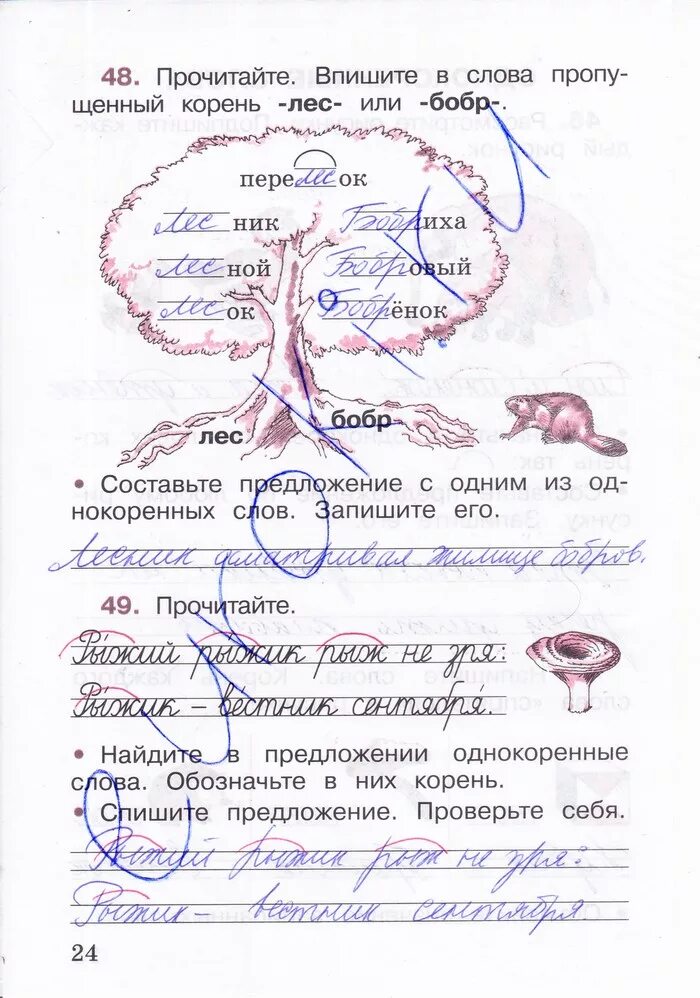 48. Прочитайте. Впишите в слова пропу-
щенный корень -лес- или -бобр-.
перелесок
Лесник Бобриха
Лесной Бобровый
Лесок Бобрёнок
лес бобр
• Составьте предложение с одним из од-
нокоренных слов. Запишите его.
Лесник осматривал жилище бобров.
49. Прочитайте.
Рыжий рыжик рыж не зря:
Рыжик – вестник сентября.
• Найдите в предложении однокоренные
слова. Обозначьте в них корень.
• Спишите предложение. Проверьте себя.
Рыжий рыжик рыж не зря:
Рыжик – вестник сентября.
24